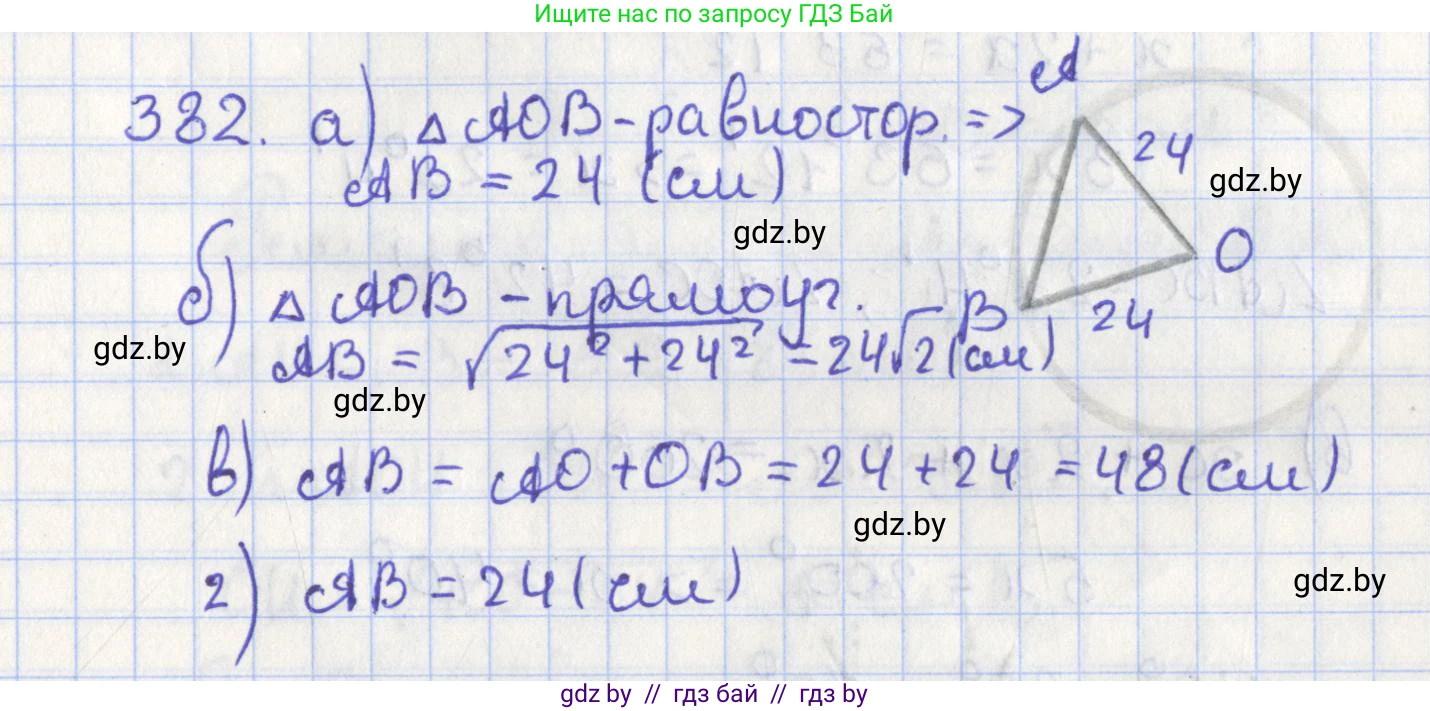 Ищите нас по запросу ГДЗ Бай
382. а) △ AOB - равностор. =>
AB = 24 (см)
A
24
O
24
B
gdz.by
gdz.by
б) △ AOB - прямоуг.
gdz.by
AB = √(24² + 24²) = 24√2 (см)
gdz.by
в) AB = AO + OB = 24 + 24 = 48 (см)
gdz.by
г) AB = 24 (см)
gdz.by
gdz by // гдз бай // гдз by